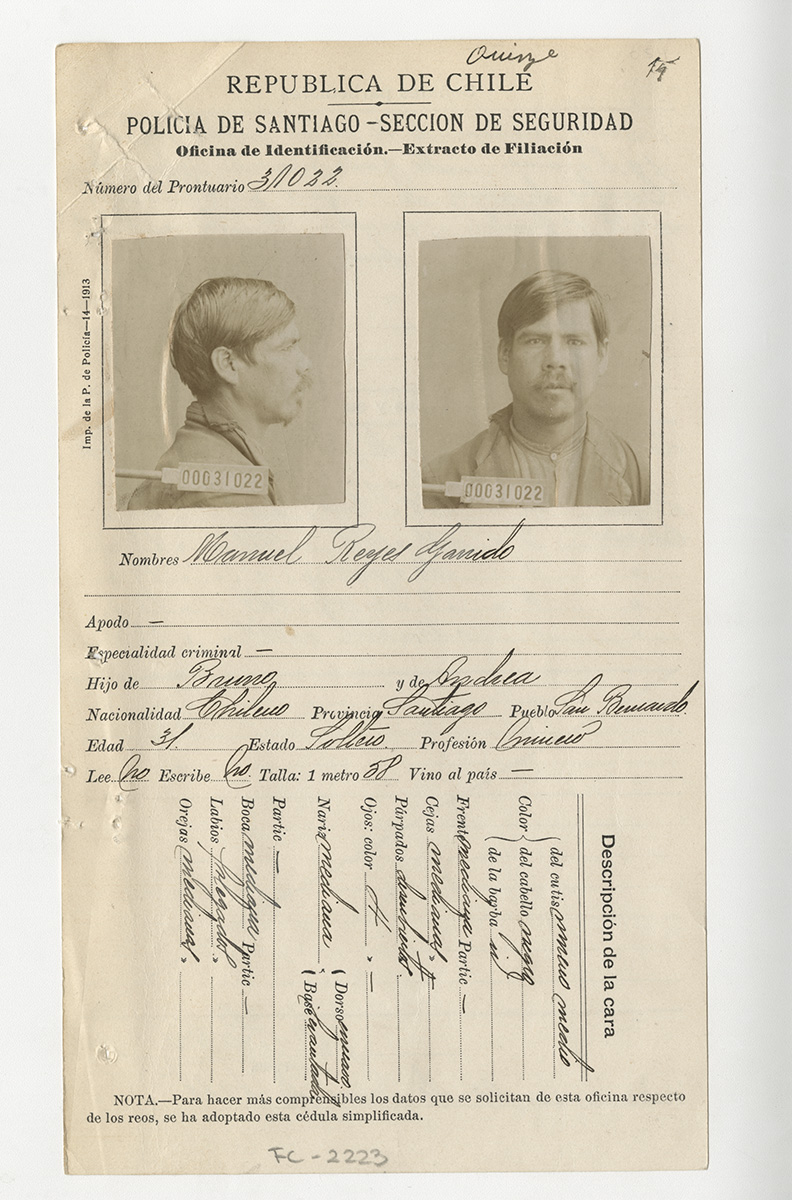 Quinze
REPUBLICA DE CHILE
POLICIA DE SANTIAGO - SECCION DE SEGURIDAD
Oficina de Identificación.—Extracto de Filiación
Número del Prontuario 31022.
Imp. de la P. de Policía—14—1913
00031022
00031022
Nombres Manuel Reyes Garrido
Apodo —
Especialidad criminal —
Hijo de Bruno y de Andrea
Nacionalidad Chileno Provincia Santiago Pueblo San Bernardo
Edad 31. Estado Soltero. Profesión minero
Lee no Escribe no. Talla: 1 metro 58 Vino al país —
Descripción de la cara
Color { del cutis moreno medio
del cabello negro
de la barba n.
Frente mediana Partic —
Cejas medianas »
Párpados
Ojos: color » —
Nariz mediana ( Dorso
« ( Base levantada
Partic —
Boca mediana Partic —
Labios delgados »
Orejas medianas »
NOTA.—Para hacer más comprensibles los datos que se solicitan de esta oficina respecto
de los reos, se ha adoptado esta cédula simplificada.
FC - 2223